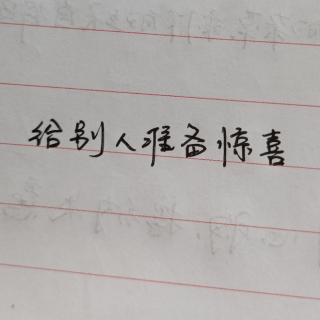 给别人准备惊喜